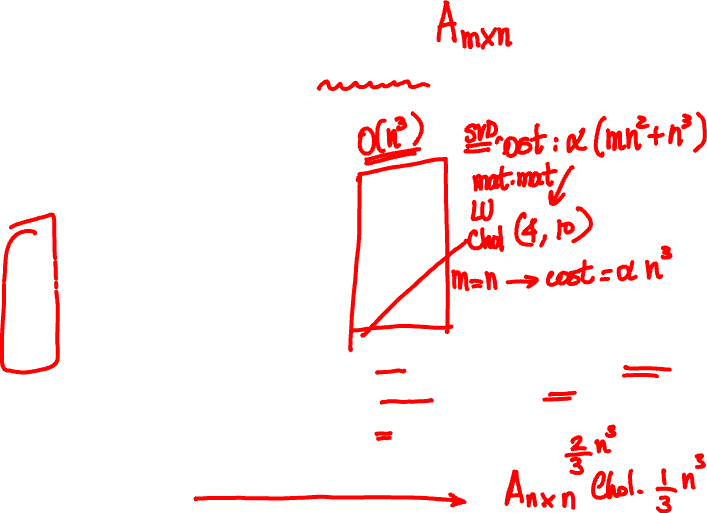 A m×n
O(n³)
SVD cost: α(mn²+n³)
mat.mat
LU
Chol (4, 10)
m=n → cost = α n³
2/3 n³
A n×n Chol. 1/3 n³